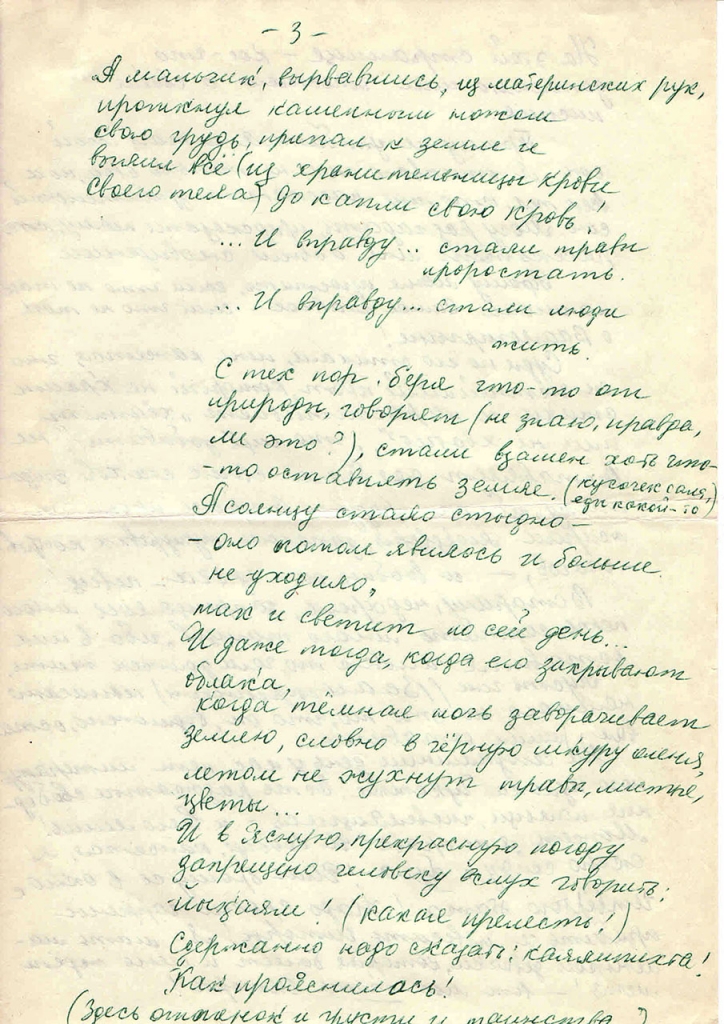 - 3 -
А мальчик, вырвавшись, из материнских рук,
проткнул каменным ножом
свою грудь, припал к земле и
вылил всё (из хранительницы крови
своего тела) до капли свою кровь
... И вправду... стали травы
проростать.
... И вправду... стали люди
жить.
С тех пор, беря что-то от
природы, говорят (не знаю, правда,
ли это?), стали взамен хоть что-
-то оставлять земле. (кусочек сала,
еды какой-то)
А солнцу стало стыдно -
- оно потом явилось и больше
не уходило,
так и светит по сей день...
И даже тогда, когда его закрывают
облака,
когда тёмная ночь заворачивает
землю, словно в чёрную шкуру оленя,
летом не жухнут травы, листье,
цветы...
И в ясную, прекрасную погоду
запрещено человеку вслух говорить:
! (какая прелесть!)
Сдержанно надо сказать: !
Как прояснилось!
(Здесь оттенок и грусти и таинства?)